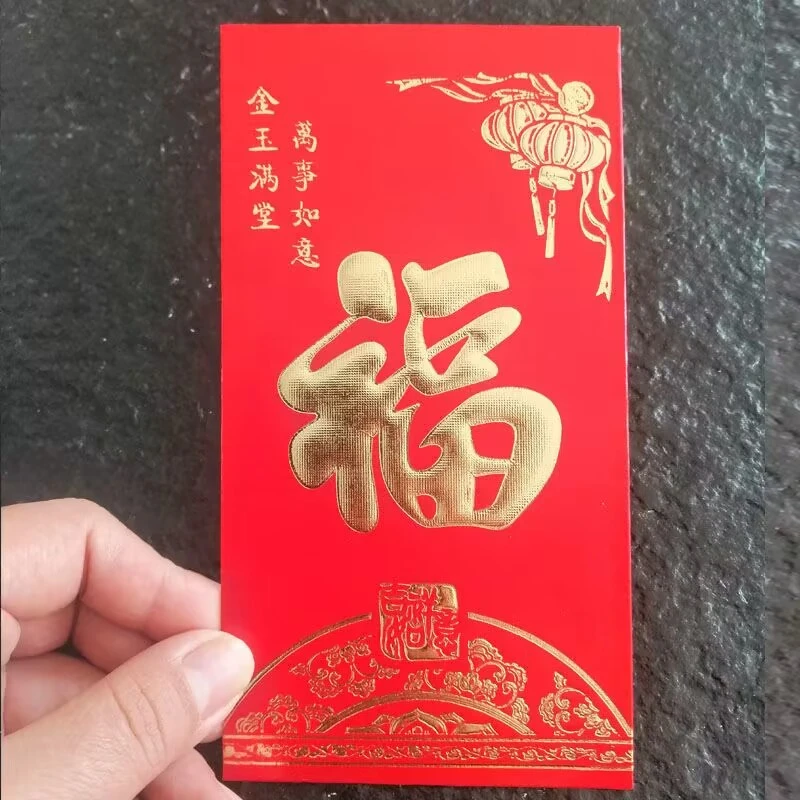 萬事如意
金玉满堂
福
吉祥